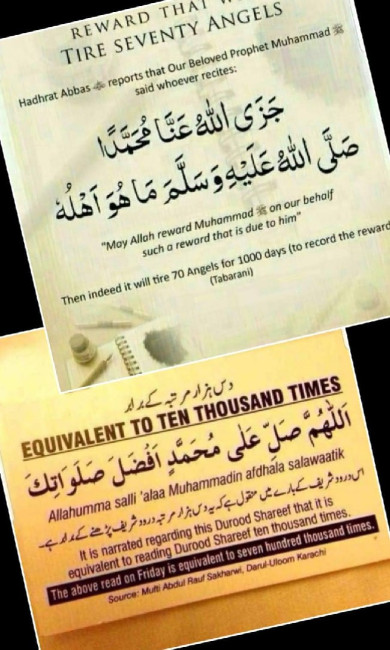 REWARD THAT W
TIRE SEVENTY ANGELS
Hadhrat Abbas ﷺ reports that Our Beloved Prophet Muhammad ﷺ
said whoever recites:
جَزَى اللهُ عَنَّا مُحَمَّدًا
صَلَّى اللهُ عَلَيْهِ وَسَلَّمَ مَا هُوَ اَهْلُهُ
"May Allah reward Muhammad ﷺ on our behalf
such a reward that is due to him"
Then indeed it will tire 70 Angels for 1000 days (to record the reward
(Tabarani)
دس ہزار مرتبہ کے برابر
EQUIVALENT TO TEN THOUSAND TIMES
اَللّٰهُمَّ صَلِّ عَلٰى مُحَمَّدٍ اَفْضَلَ صَلَوَاتِكَ
Allahumma salli 'alaa Muhammadin afdhala salawaatik
اس درود شریف کے بارے میں منقول ہے کہ یہ دس ہزار مرتبہ درود شریف پڑھنے کے برابر ہے۔
It is narrated regarding this Durood Shareef that it is
equivalent to reading Durood Shareef ten thousand times.
The above read on Friday is equivalent to seven hundred thousand times.
Source: Mufti Abdul Rauf Sakharwi, Darul-Uloom Karachi